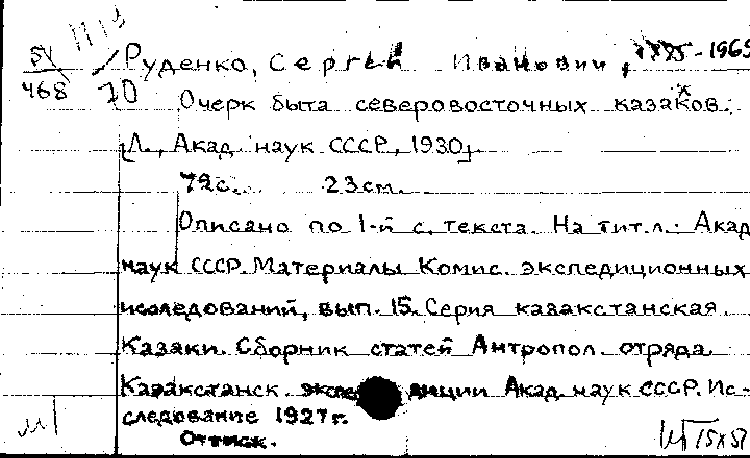 54/468 70 Руденко, Сергей Иванович, 1885-1969
Очерк быта северовосточных казаков.
[Л., Акад. наук СССР, 1930].
72с. 23см.
Описано по 1-й с. текста. На тит.л.: Акад
наук СССР. Материалы Комис. экспедиционных
исследований, вып. 15. Серия казакстанская.
Казаки. Сборник статей Антропол. отряда
Казакстанск. экспедиции Акад. наук СССР. Ис-
следование 1927 г.
Оттиск.